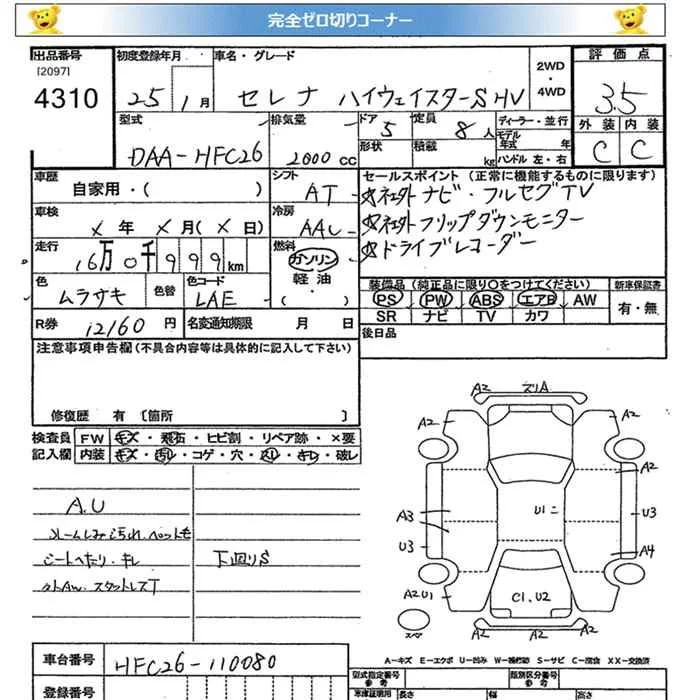 完全ゼロ切りコーナー
出品番号 初度登録年月 車名・グレード 2WD・4WD 評価点
[2097]
4310 25 1月 セレナ ハイウェイスターS HV 3.5
型式 排気量 ドア 定員 ディーラー・並行 外装 内装
DAA-HFC26 2000cc 5 8人 モデル年式 年 C C
形状 積載 kg ハンドル 左・右
車歴 シフト セールスポイント (正常に機能するものに限ります)
自家用・( ) AT ☆社外ナビ・フルセグTV
車検 冷房 ☆社外フリップダウンモニター
×年 ×月(×日) AAC ☆ドライブレコーダー
走行 燃料
16万0千999km ガソリン・軽油・( )
色 色替 色コード 装備品 (純正品に限り○をつけてください) 新車保証書
ムラサキ LAE PS PW ABS エアB AW 有・無
SR ナビ TV カワ
R券 12160円 名変通知期限 月 日 後日品
注意事項申告欄 (不具合内容等は具体的に記入して下さい)
修復歴 有 [箇所 ]
検査員 FW キズ・飛石・ヒビ割・リペア跡・×要
記入欄 内装 キズ・汚れ・コゲ・穴・スレ・キレ・破レ
A.U
シートへたり・キレ
スタットレスT
下廻りS
A2 スリA A2
A2 A2
A2
A3 U1 U3
U3 A4
A2U1 C1.U2
スペア A2 A2 A2
A-キズ E-エクボ U-凹み W-補修跡 S-サビ C-腐食 XX-交換済
車台番号 HFC26-110080
型式指定番号 参考 類別区分番号 参考
登録番号 車庫証明用 参考 長さ 幅 高さ